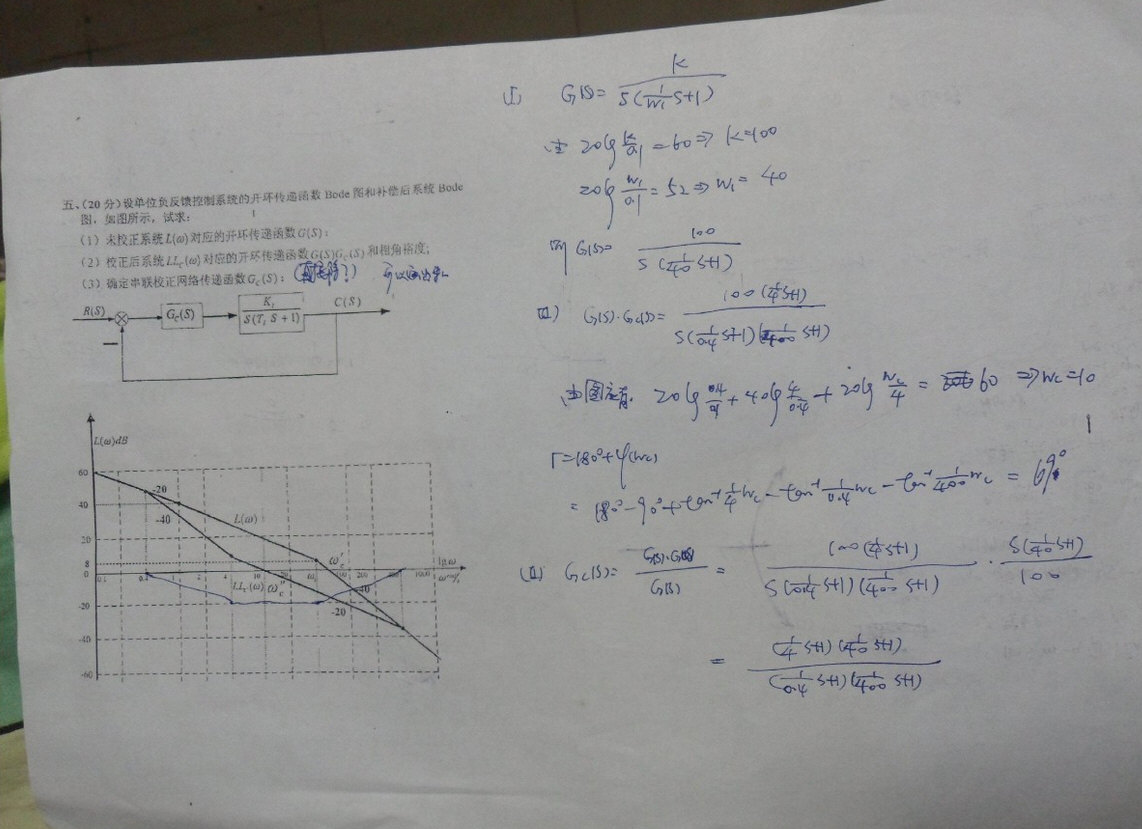 五、(20分)设单位负反馈控制系统的开环传递函数 Bode 图和补偿后系统 Bode
图,如图所示,试求:
(1)未校正系统L(ω)对应的开环传递函数G(S);
(2)校正后系统LLc(ω)对应的开环传递函数G(S)Gc(S)和相角裕度;
(3)确定串联校正网络传递函数Gc(S);
R(S)
Gc(S)
K₁ / S(T₁ S + 1)
C(S)
L(ω)dB
60
-20
40
-40
L(ω)
20
ωc'
lgω
8
0
0.1
1
2
4
10
20
100
200
1000
LLc(ω)
ωc''
-40
-20
-20
-40
-60
(I) G(S)= K / S(1/W₁ S+1)
由 20lg K/0.1 = 60 ⇒ K=100
20lg W₁/0.1 = 52 ⇒ W₁= 40
则 G(S)= 100 / S(1/40 S+1)
(II) G(S)·Gc(S)= 100(1/4 S+1) / S(1/0.4 S+1)(1/400 S+1)
由图应有. 20lg 0.4/0.1 + 40lg 4/0.4 + 20lg Wc/4 = 60 ⇒ Wc=10
r=180°+φ(Wc)
= 180°-90°+tan⁻¹ 1/4 Wc - tan⁻¹ 1/0.4 Wc - tan⁻¹ 1/400 Wc = 69°
(III) Gc(S)= G(S)·Gc(S) / G(S) = 100(1/4 S+1) / S(1/0.4 S+1)(1/400 S+1) · S(1/40 S+1) / 100
= (1/4 S+1)(1/40 S+1) / (1/0.4 S+1)(1/400 S+1)